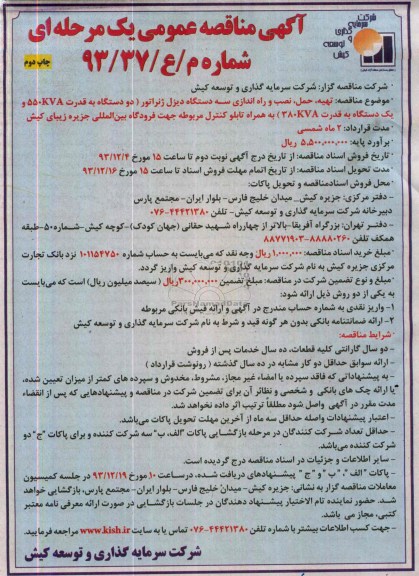 شرکت سرمایه گذاری و توسعه کیش
آگهی مناقصه عمومی یک مرحله ای
شماره م/ع/۹۳/۳۷
چاپ دوم
شرکت مناقصه گزار: شرکت سرمایه گذاری و توسعه کیش
موضوع مناقصه: تهیه، حمل، نصب و راه اندازی سه دستگاه دیزل ژنراتور ( دو دستگاه به قدرت ۵۵۰KVA و
یک دستگاه به قدرت ۳۸۰KVA ) به همراه تابلو کنترل مربوطه جهت فرودگاه بین‌المللی جزیره زیبای کیش
مدت قرارداد: ۲ ماه شمسی
برآورد پایه: ۵,۵۰۰,۰۰۰,۰۰۰ ریال
تاریخ فروش اسناد مناقصه: از تاریخ درج آگهی نوبت دوم تا ساعت ۱۵ مورخ ۹۳/۱۲/۴
مدت تحویل اسناد مناقصه: از تاریخ اتمام مهلت فروش اسناد تا ساعت ۱۵ مورخ ۹۳/۱۲/۱۶
محل فروش اسناد مناقصه و تحویل پاکات:
- دفتر مرکزی: جزیره کیش_ میدان خلیج فارس- بلوار ایران- مجتمع پارس
دبیرخانه شرکت سرمایه گذاری و توسعه کیش- تلفن ۴۴۴۲۱۳۸۰-۰۷۶
- دفتر تهران: بزرگراه آفریقا-بالاتر از چهارراه شهید حقانی (جهان کودک)-کوچه کیش-شماره۵۰-طبقه
همکف تلفن ۸۸۸۸۰۲۶۰-۸۸۷۷۱۹۰۳
مبلغ خرید اسناد مناقصه: ۱,۰۰۰,۰۰۰ ریال وجه نقد که می‌بایست به حساب شماره ۱۰۱۱۵۴۷۵۰ نزد بانک تجارت
مرکزی جزیره کیش به نام شرکت سرمایه گذاری و توسعه کیش واریز گردد.
مبلغ و نوع تضمین شرکت در مناقصه: مبلغ تضمین ۳۰۰,۰۰۰,۰۰۰ ریال ( سیصد میلیون ریال) است که می‌بایست
به یکی از دو روش ذیل ارائه شود:
۱- واریز نقدی به شماره حساب مندرج در آگهی و ارائه فیش بانکی مربوطه
۲- ارائه ضمانتنامه بانکی بدون هر گونه قید و شرط به نام شرکت سرمایه گذاری و توسعه کیش
شرایط مناقصه:
- دو سال گارانتی کلیه قطعات، ده سال خدمات پس از فروش
- ارائه سوابق حداقل دو کار مشابه در ده سال گذشته ( رونوشت قرارداد )
- به پیشنهاداتی که فاقد سپرده یا امضاء غیر مجاز، مشروط، مخدوش و سپرده های کمتر از میزان تعیین شده،
یا ارائه چک های بانکی و شخصی و نظائر آن برای تضمین شرکت در مناقصه و پیشنهادهایی که پس از انقضاء
مدت مقرر در آگهی واصل شود مطلقاً ترتیب اثر داده نخواهد شد.
- اعتبار پیشنهادات واصله حداقل سه ماه از آخرین مهلت تحویل پاکات می‌باشد.
- حداقل تعداد شرکت کنندگان در مرحله بازگشایی پاکات "الف، ب" سه شرکت کننده و برای پاکات "ج" دو
شرکت کننده می‌باشد.
- سایر اطلاعات و جزئیات در اسناد مناقصه درج گردیده است.
- پاکات "الف "، " ب " و " ج " پیشنهادهای دریافت شده، درساعت ۱۰ مورخ ۹۳/۱۲/۱۹ در جلسه کمیسیون
معاملات مناقصه گزار به نشانی: جزیره کیش- میدان خلیج فارس- بلوار ایران- مجتمع پارس، بازگشایی خواهد
شد. حضور نماینده تام الاختیار پیشنهاد دهندگان در جلسات بازگشایی در صورت ارائه معرفی نامه معتبر
کتبی، مجاز می باشد.
- جهت کسب اطلاعات بیشتر با شماره تلفن ۴۴۴۲۱۳۸۰-۰۷۶ تماس یا به سایت www.kish.ir مراجعه فرمایید.
شرکت سرمایه گذاری و توسعه کیش